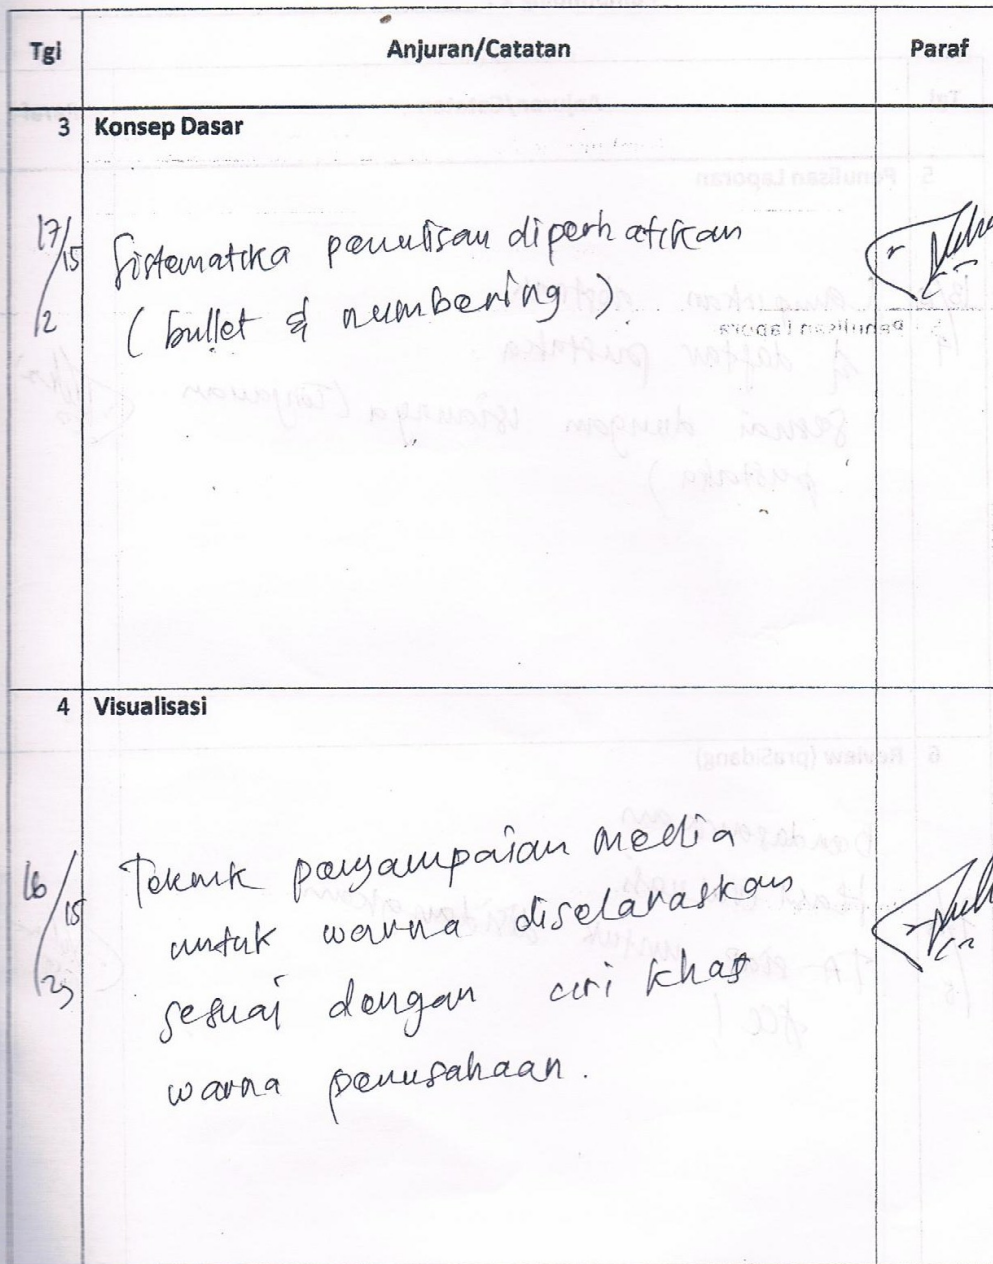 Tgl Anjuran/Catatan Paraf
3 Konsep Dasar
17/15
/2
Sistematika penulisan diperhatikan
( bullet & numbering )
4 Visualisasi
16/15
Teknik penyampaian media
untuk warna diselaraskan
sesuai dengan ciri khas
warna perusahaan.